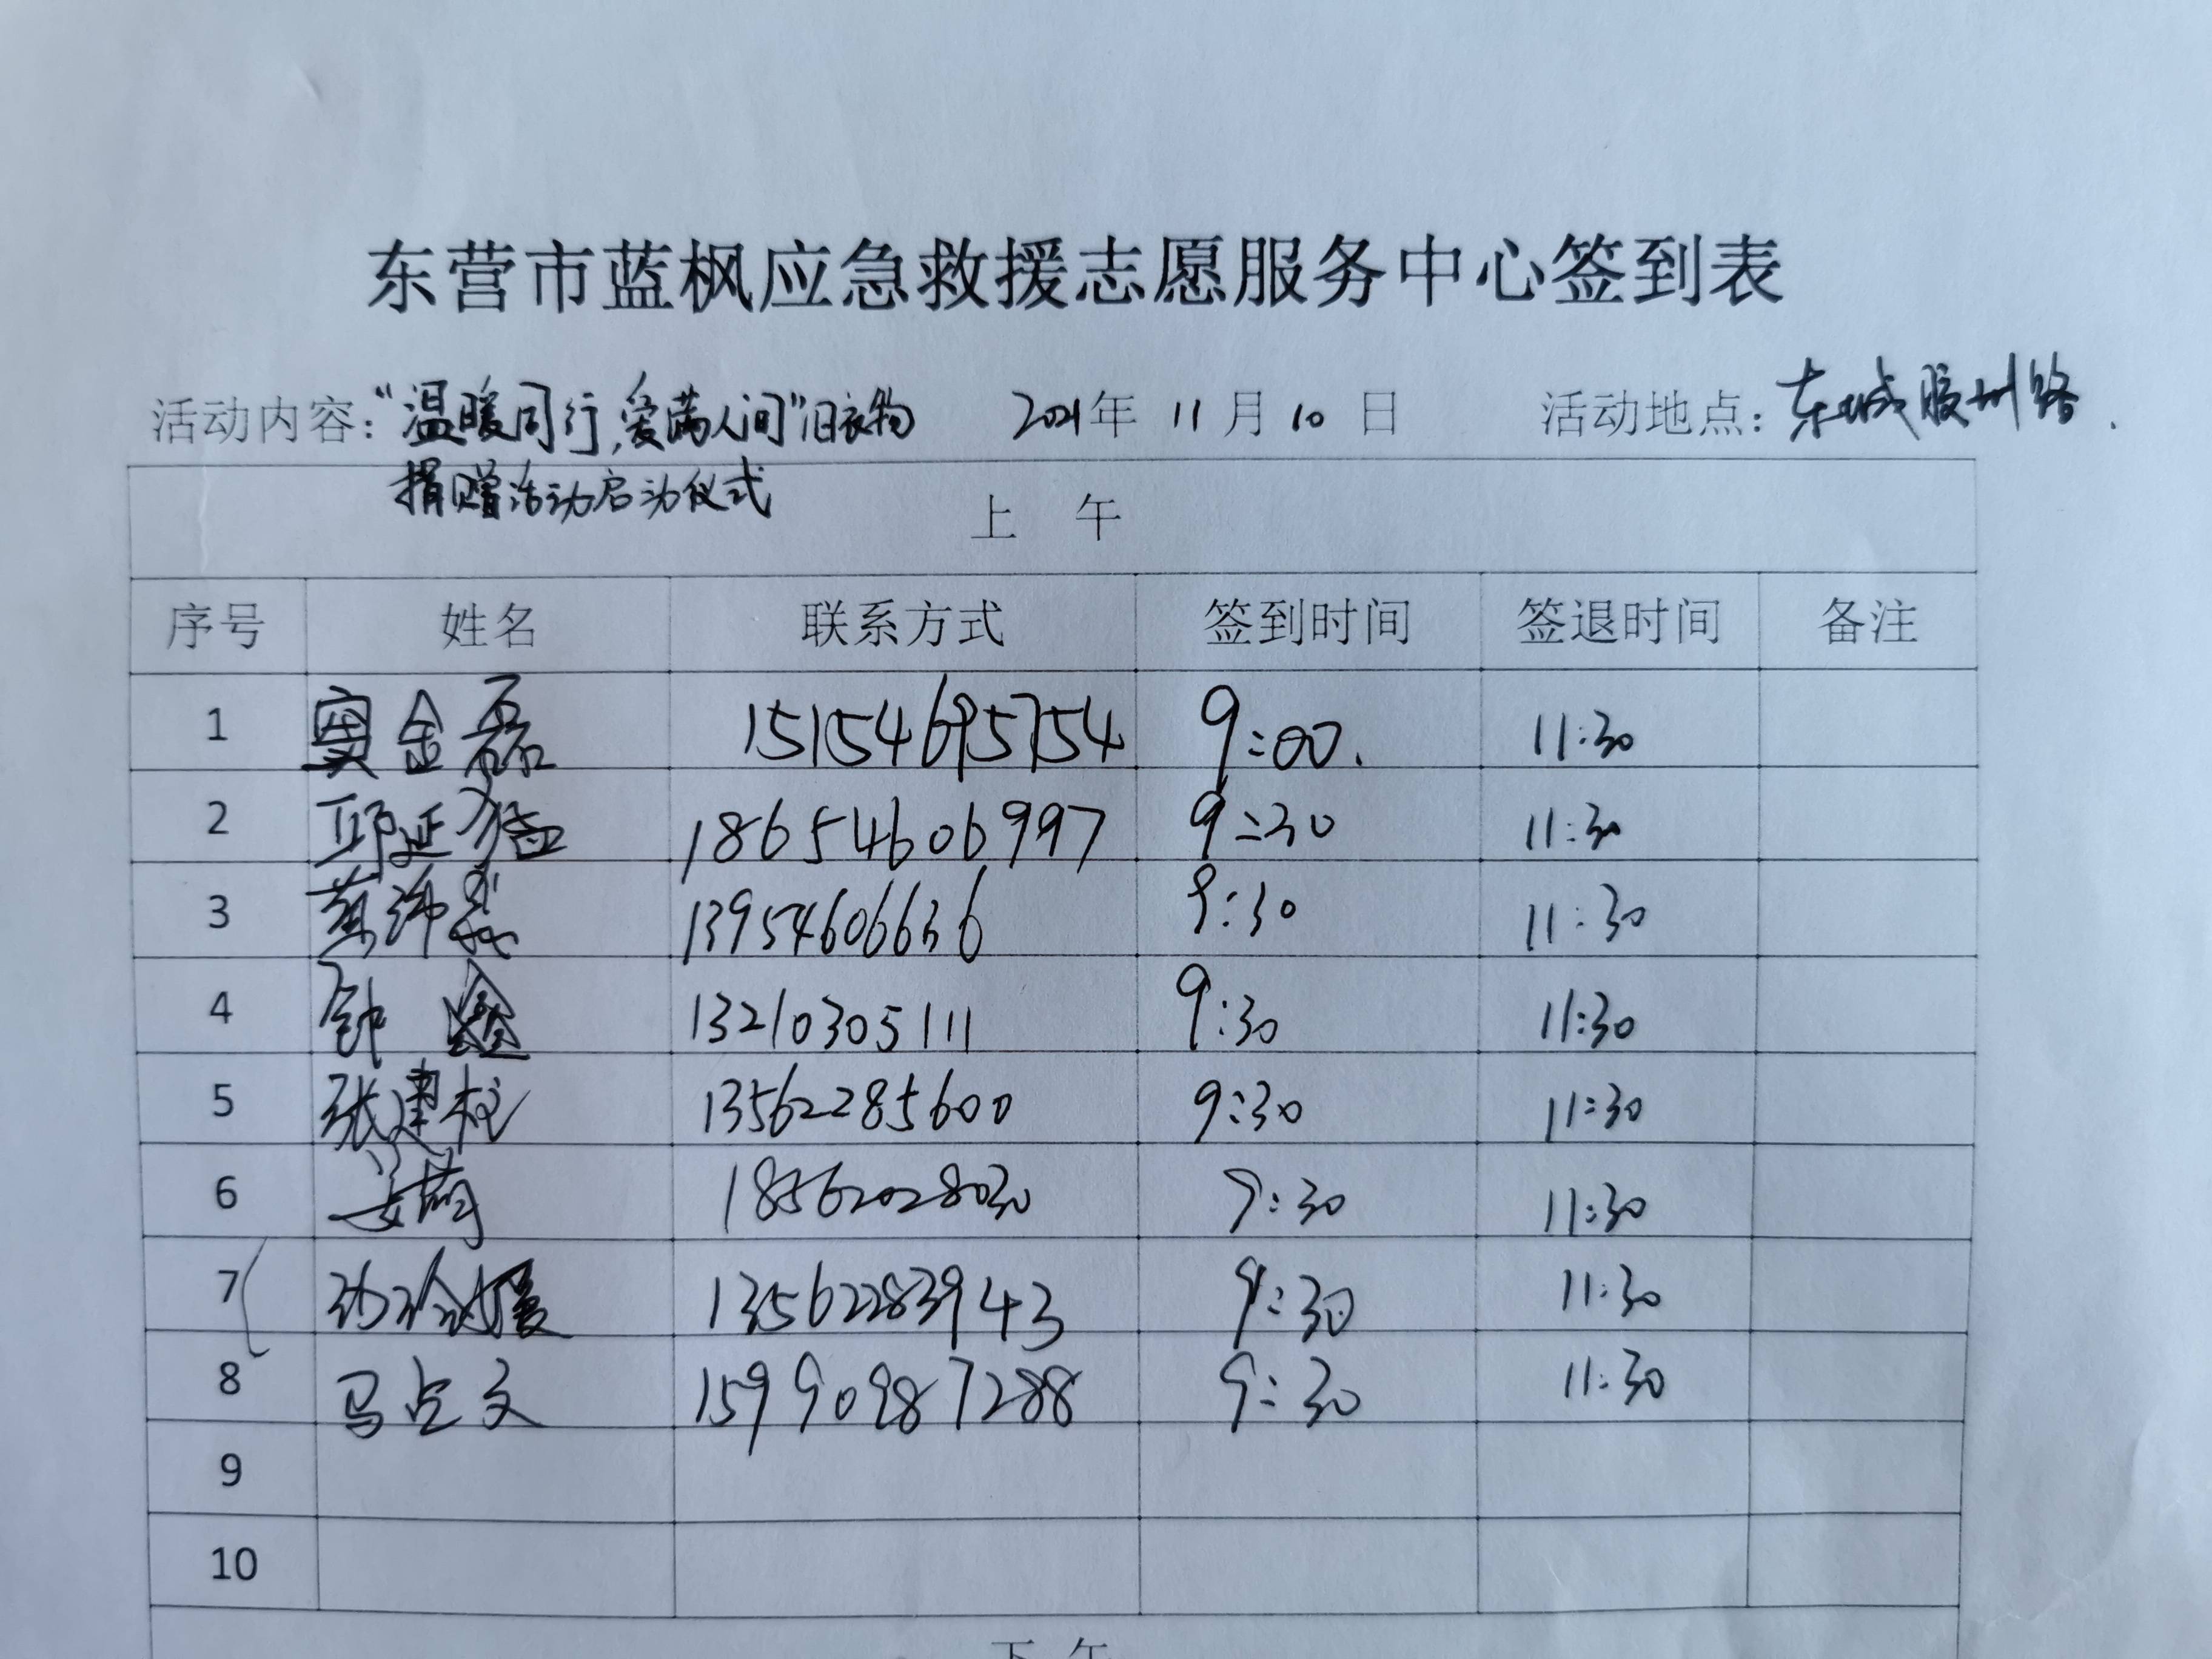 东营市蓝枫应急救援志愿服务中心签到表
活动内容：“温暖同行，爱满人间”旧衣物 2021年 11月10日 活动地点：东城胶州路.
捐赠活动启动仪式
上 午
序号 姓名 联系方式 签到时间 签退时间 备注
1 金磊 15154695754 9:00. 11:30
2 邱延猛 18654606997 9:30 11:30
3 13954606636 9:30 11:30
4 钟 13210305111 9:30 11:30
5 张建柱 13562285600 9:30 11:30
6 18562028030 9:30 11:30
7 13562283943 9:30 11:30
8 马占文 15990987288 9:30 11:30
9
10
下 午